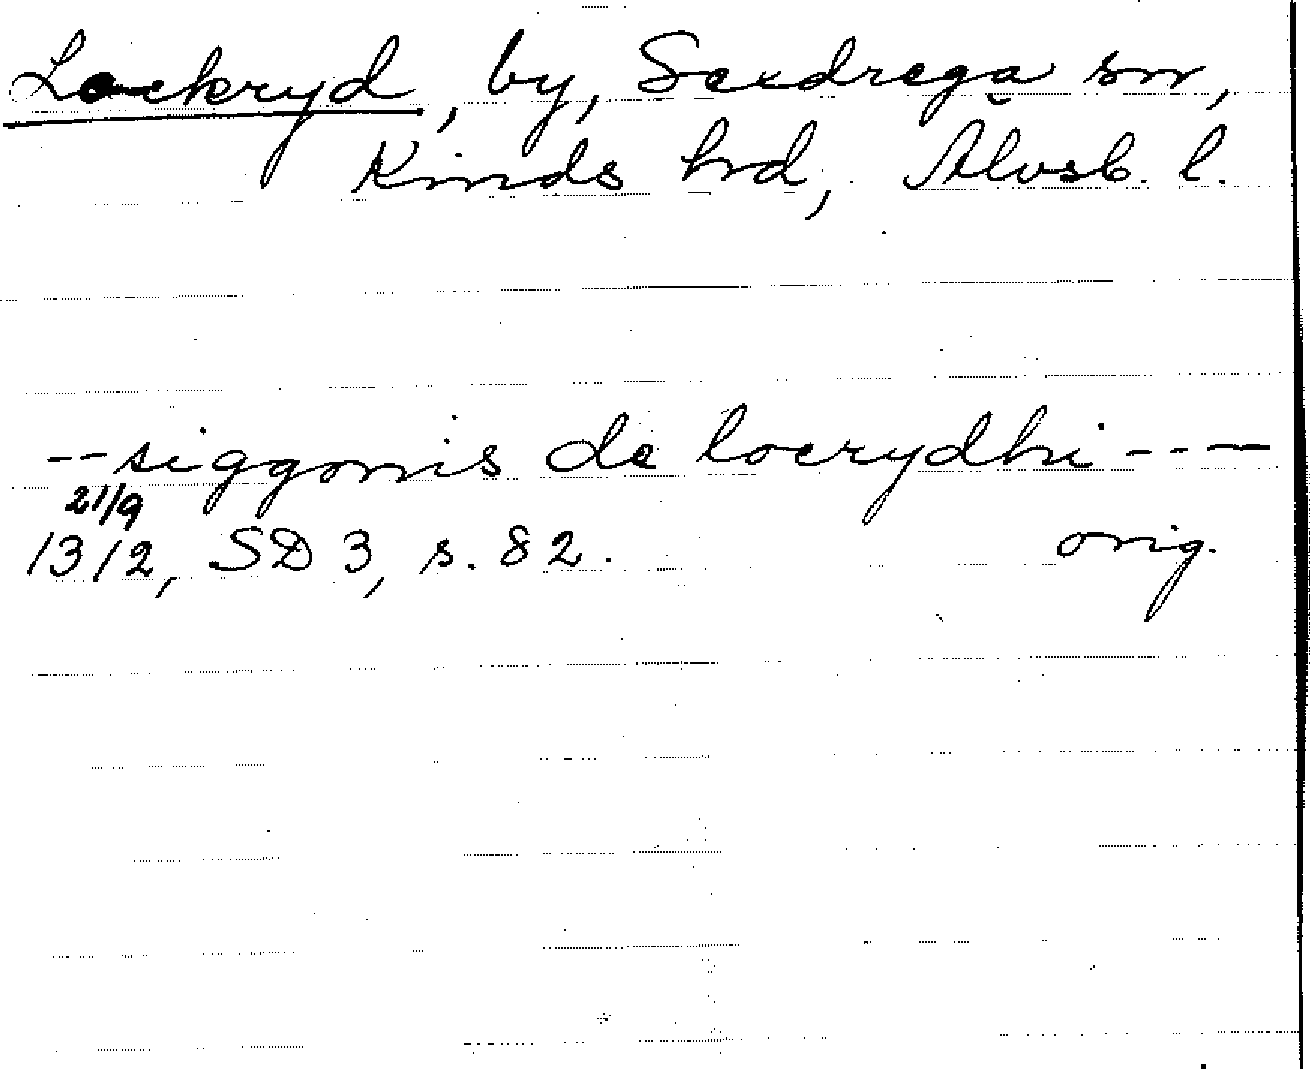 Lockryd, by, Sexdrega sn,
Kinds hrd, Älvsb. l.
-- siggonis de locrydhi ---
21/9
1312, SD 3, s. 82. orig.